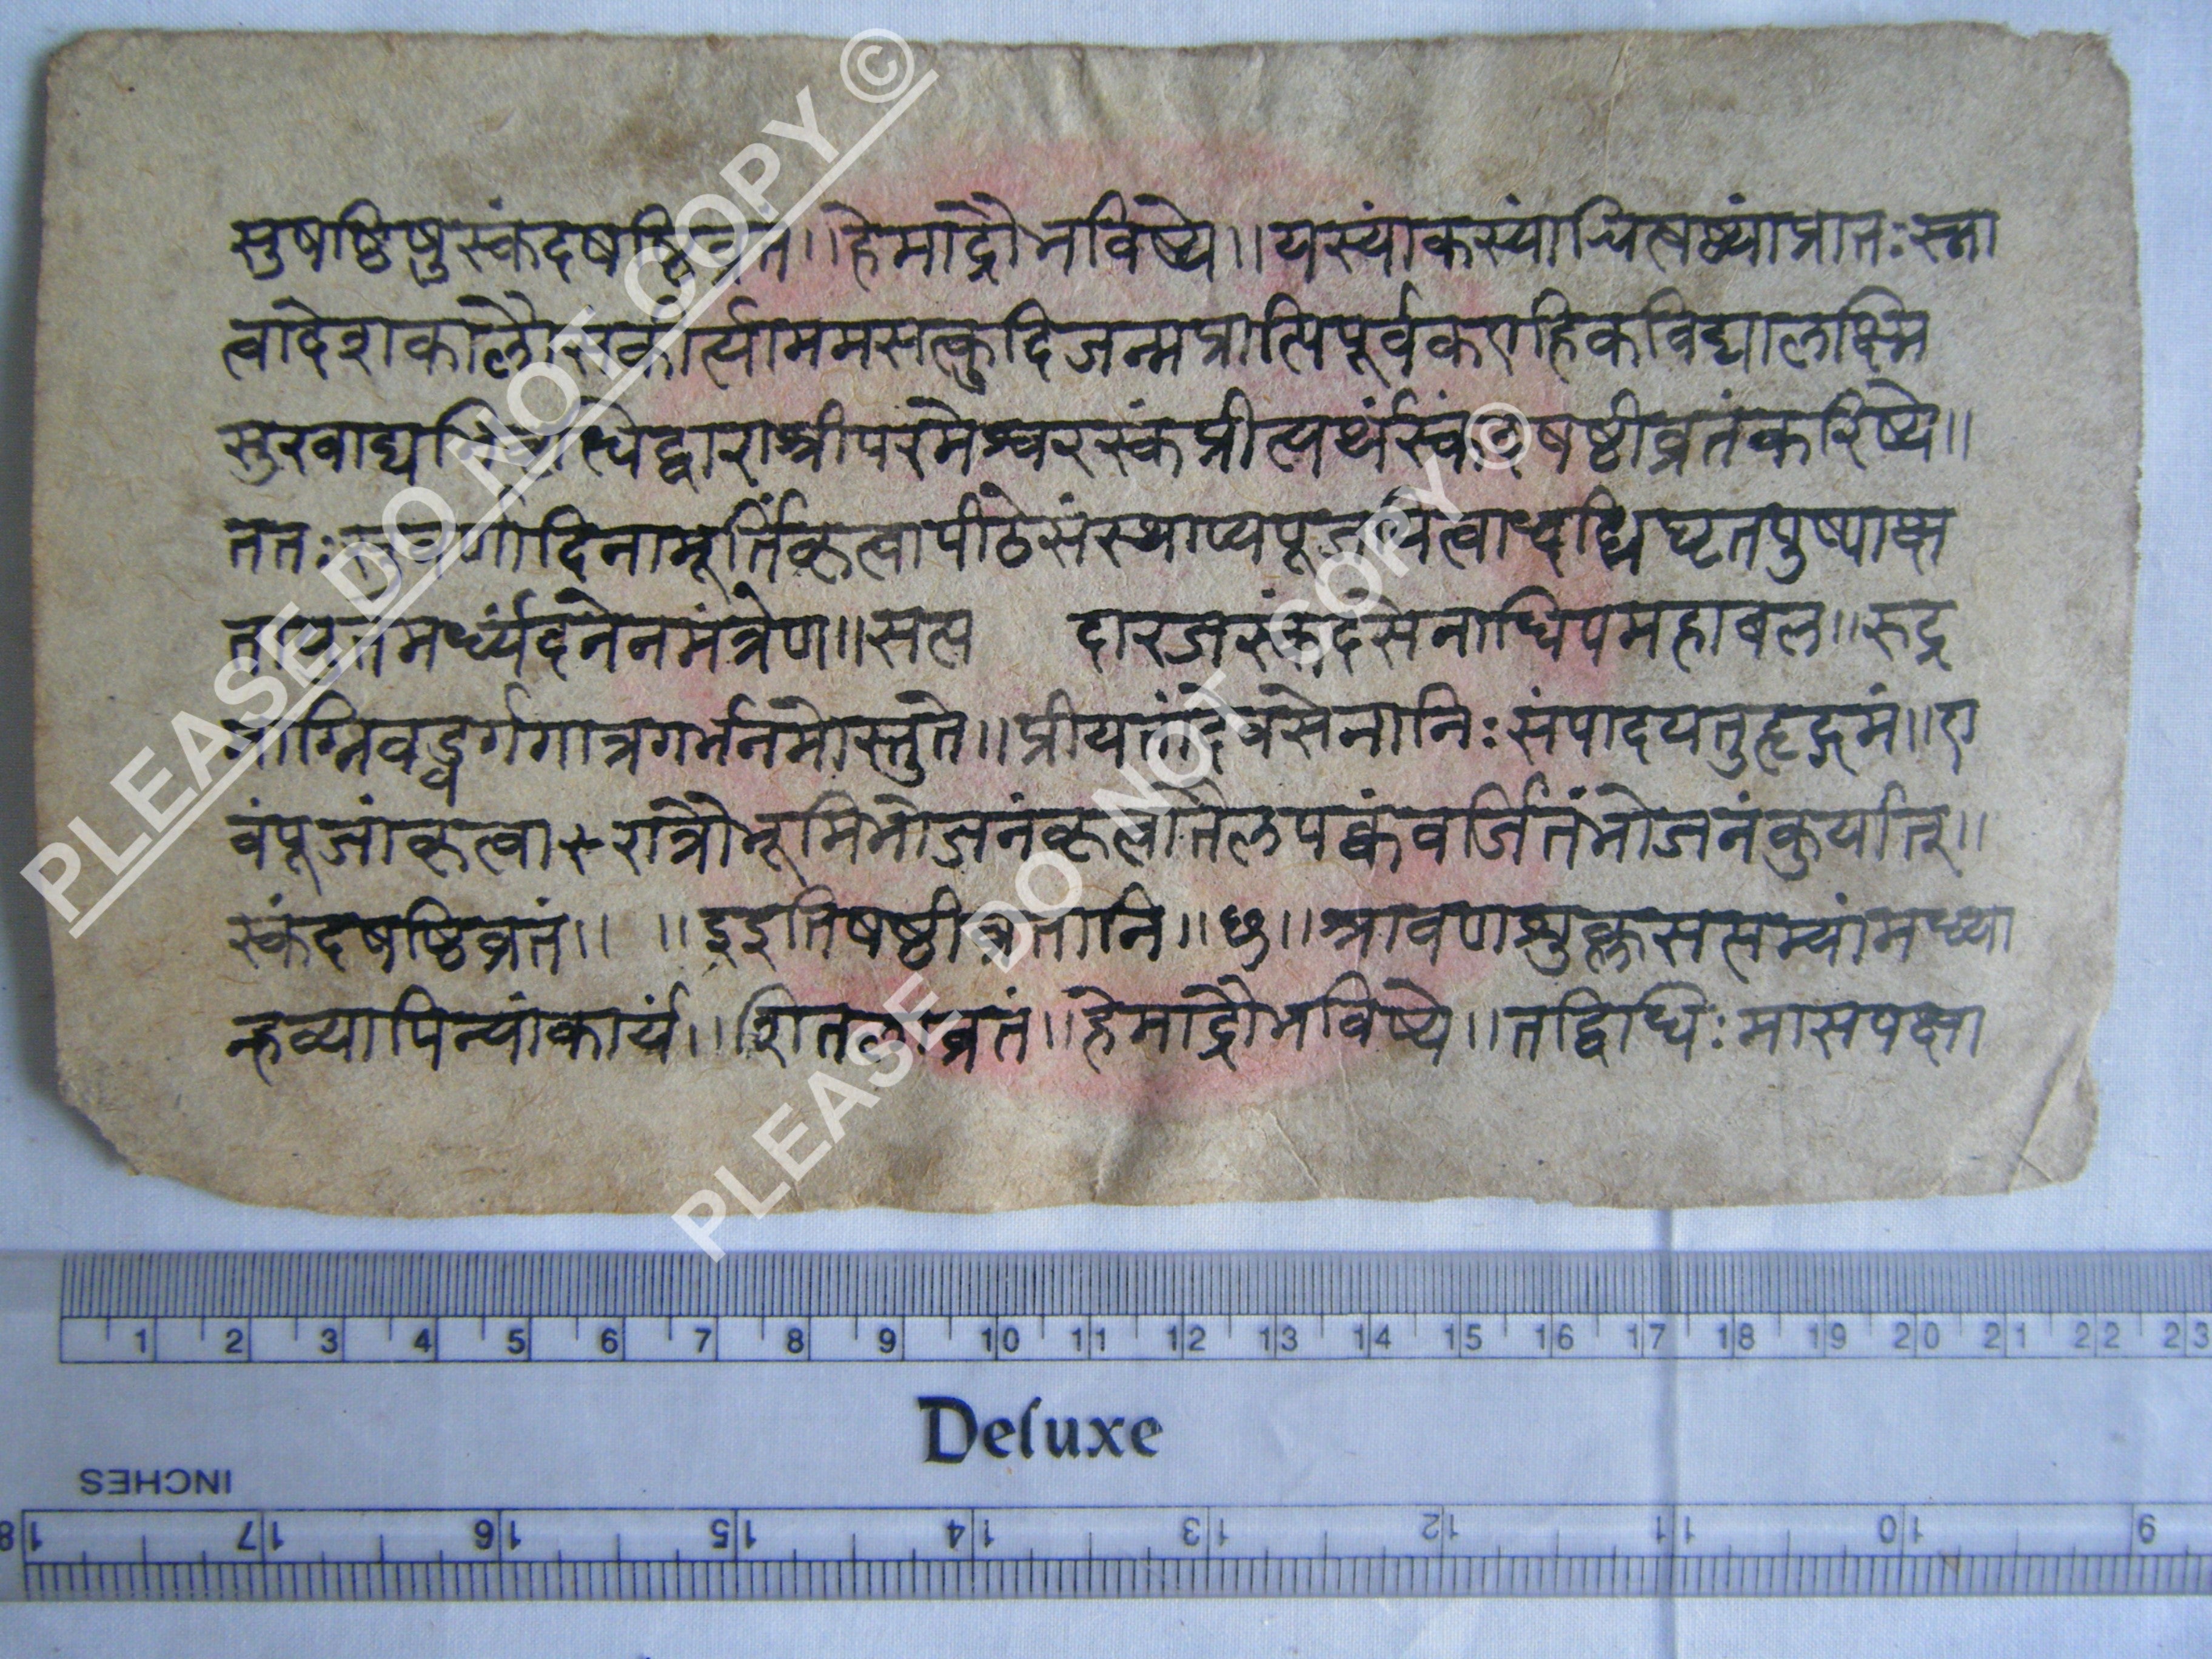 सुषष्ठिषुस्कंदषष्ठिव्रतं॥हेमाद्रौभविष्ये॥यस्यांकस्यांचित्षष्ठ्यांप्रातःस्ना
त्वादेशकालौसंकीर्त्याममसत्कुदिजन्मप्राप्तिपूर्वकएहिकविद्यालक्ष्मि
द्वाराश्रीपरमेश्वरस्कंप्रीत्यर्थंस्कंदषष्ठीव्रतंकरिष्ये॥
ततःसुवर्णादिनामूर्तिंकृत्वापीठेसंस्थाप्यपूजयित्वाथदधिघृतपुष्पाक्ष
मंत्रेण॥सप्त दारजस्कंदसेनाधिपमहाबल॥रुद्र
गर्भनमोस्तुते॥प्रीयतांदेवसेनानिःसंपादयतुहृद्गमं॥ए
वंपूजांकृत्वा रात्रौभूमिभोजनंकृत्वातैलपक्वंवर्जितंभोजनंकुर्यात्॥
स्कंदषष्ठिव्रतं॥ ॥इइतिषष्ठीव्रतानि॥छ॥श्रावणशुक्लसप्तम्यांमध्या
न्हव्यापिन्यांकार्यं॥शितलाव्रतं॥हेमाद्रौभविष्ये॥तद्विधिःमासपक्षा
PLEASE DO NOT COPY ©
PLEASE DO NOT COPY ©
1 2 3 4 5 6 7 8 9 10 11 12 13 14 15 16 17 18 19 20 21 22 23
Deluxe
INCHES
18 17 16 15 14 13 12 11 10 9